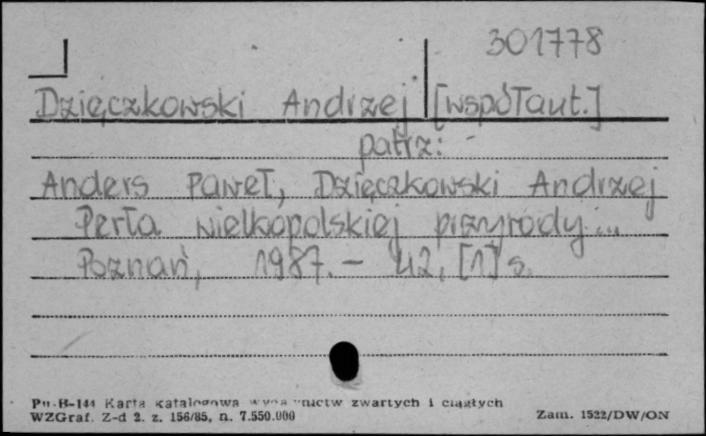 301778
Dzięczkowski Andrzej [współaut.]
patrz:
Anders Paweł, Dzięczkowski Andrzej
Perła wielkopolskiej przyrody...
Poznań, 1987. – 42, [1] s.
Pu-B-144 Karta katalogowa wydawnictw zwartych i ciągłych
WZGraf. Z-d 2. z. 156/85, n. 7.550.000
Zam. 1522/DW/ON